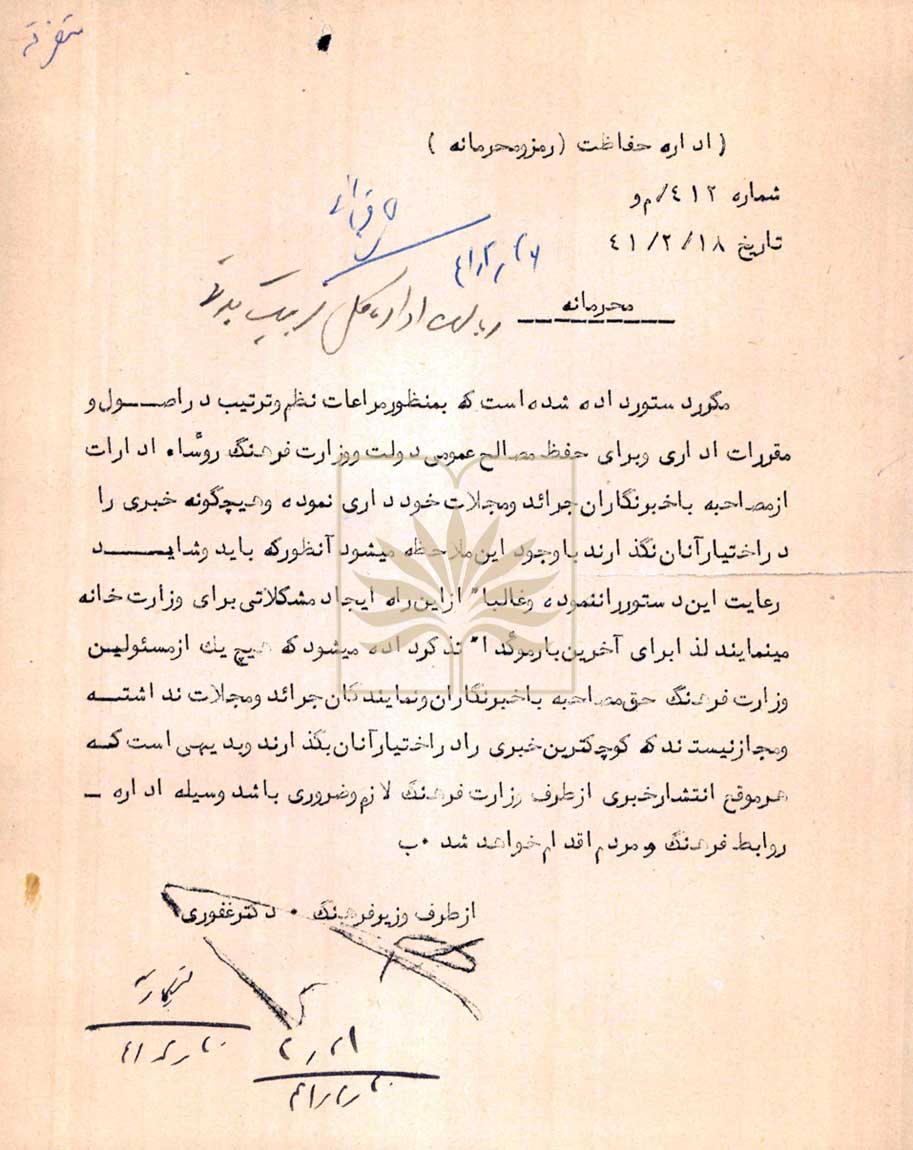 متفرقه
( اداره حفاظت (رمز و محرمانه )
شماره ٤١٢/ م و
تاریخ ٤١/٢/١٨
محرمانه
ریاست اداره کل تربیت بدنی
مکرر دستور داده شده است که بمنظور مراعات نظم و ترتیب در اصـــول و
مقررات اداری و برای حفظ مصالح عمومی دولت و وزارت فرهنگ روٴساء ادارات
از مصاحبه با خبرنگاران جرائد و مجلات خودداری نموده و هیچگونه خبری را
در اختیار آنان نگذارند با وجود این ملاحظه میشود آنطور که باید و شایـــد
رعایت این دستور را ننموده و غالبا" از این راه ایجاد مشکلاتی برای وزارت خانه
مینمایند لذا برای آخرین بار موٴکدا" تذکر داده میشود که هیچ یک از مسئولیـن
وزارت فرهنگ حق مصاحبه با خبرنگاران و نمایندگان جرائد و مجلات نداشتـــه
و مجاز نیستند که کوچکترین خبری را در اختیار آنان بگذارند و بدیهی است کـه
هر موقع انتشار خبری از طرف وزارت فرهنگ لازم و ضروری باشد وسیله اداره ـ
روابط فرهنگ و مردم اقدام خواهد شد ۰ ب
از طرف وزیر فرهنگ ۰ دکتر غفوری